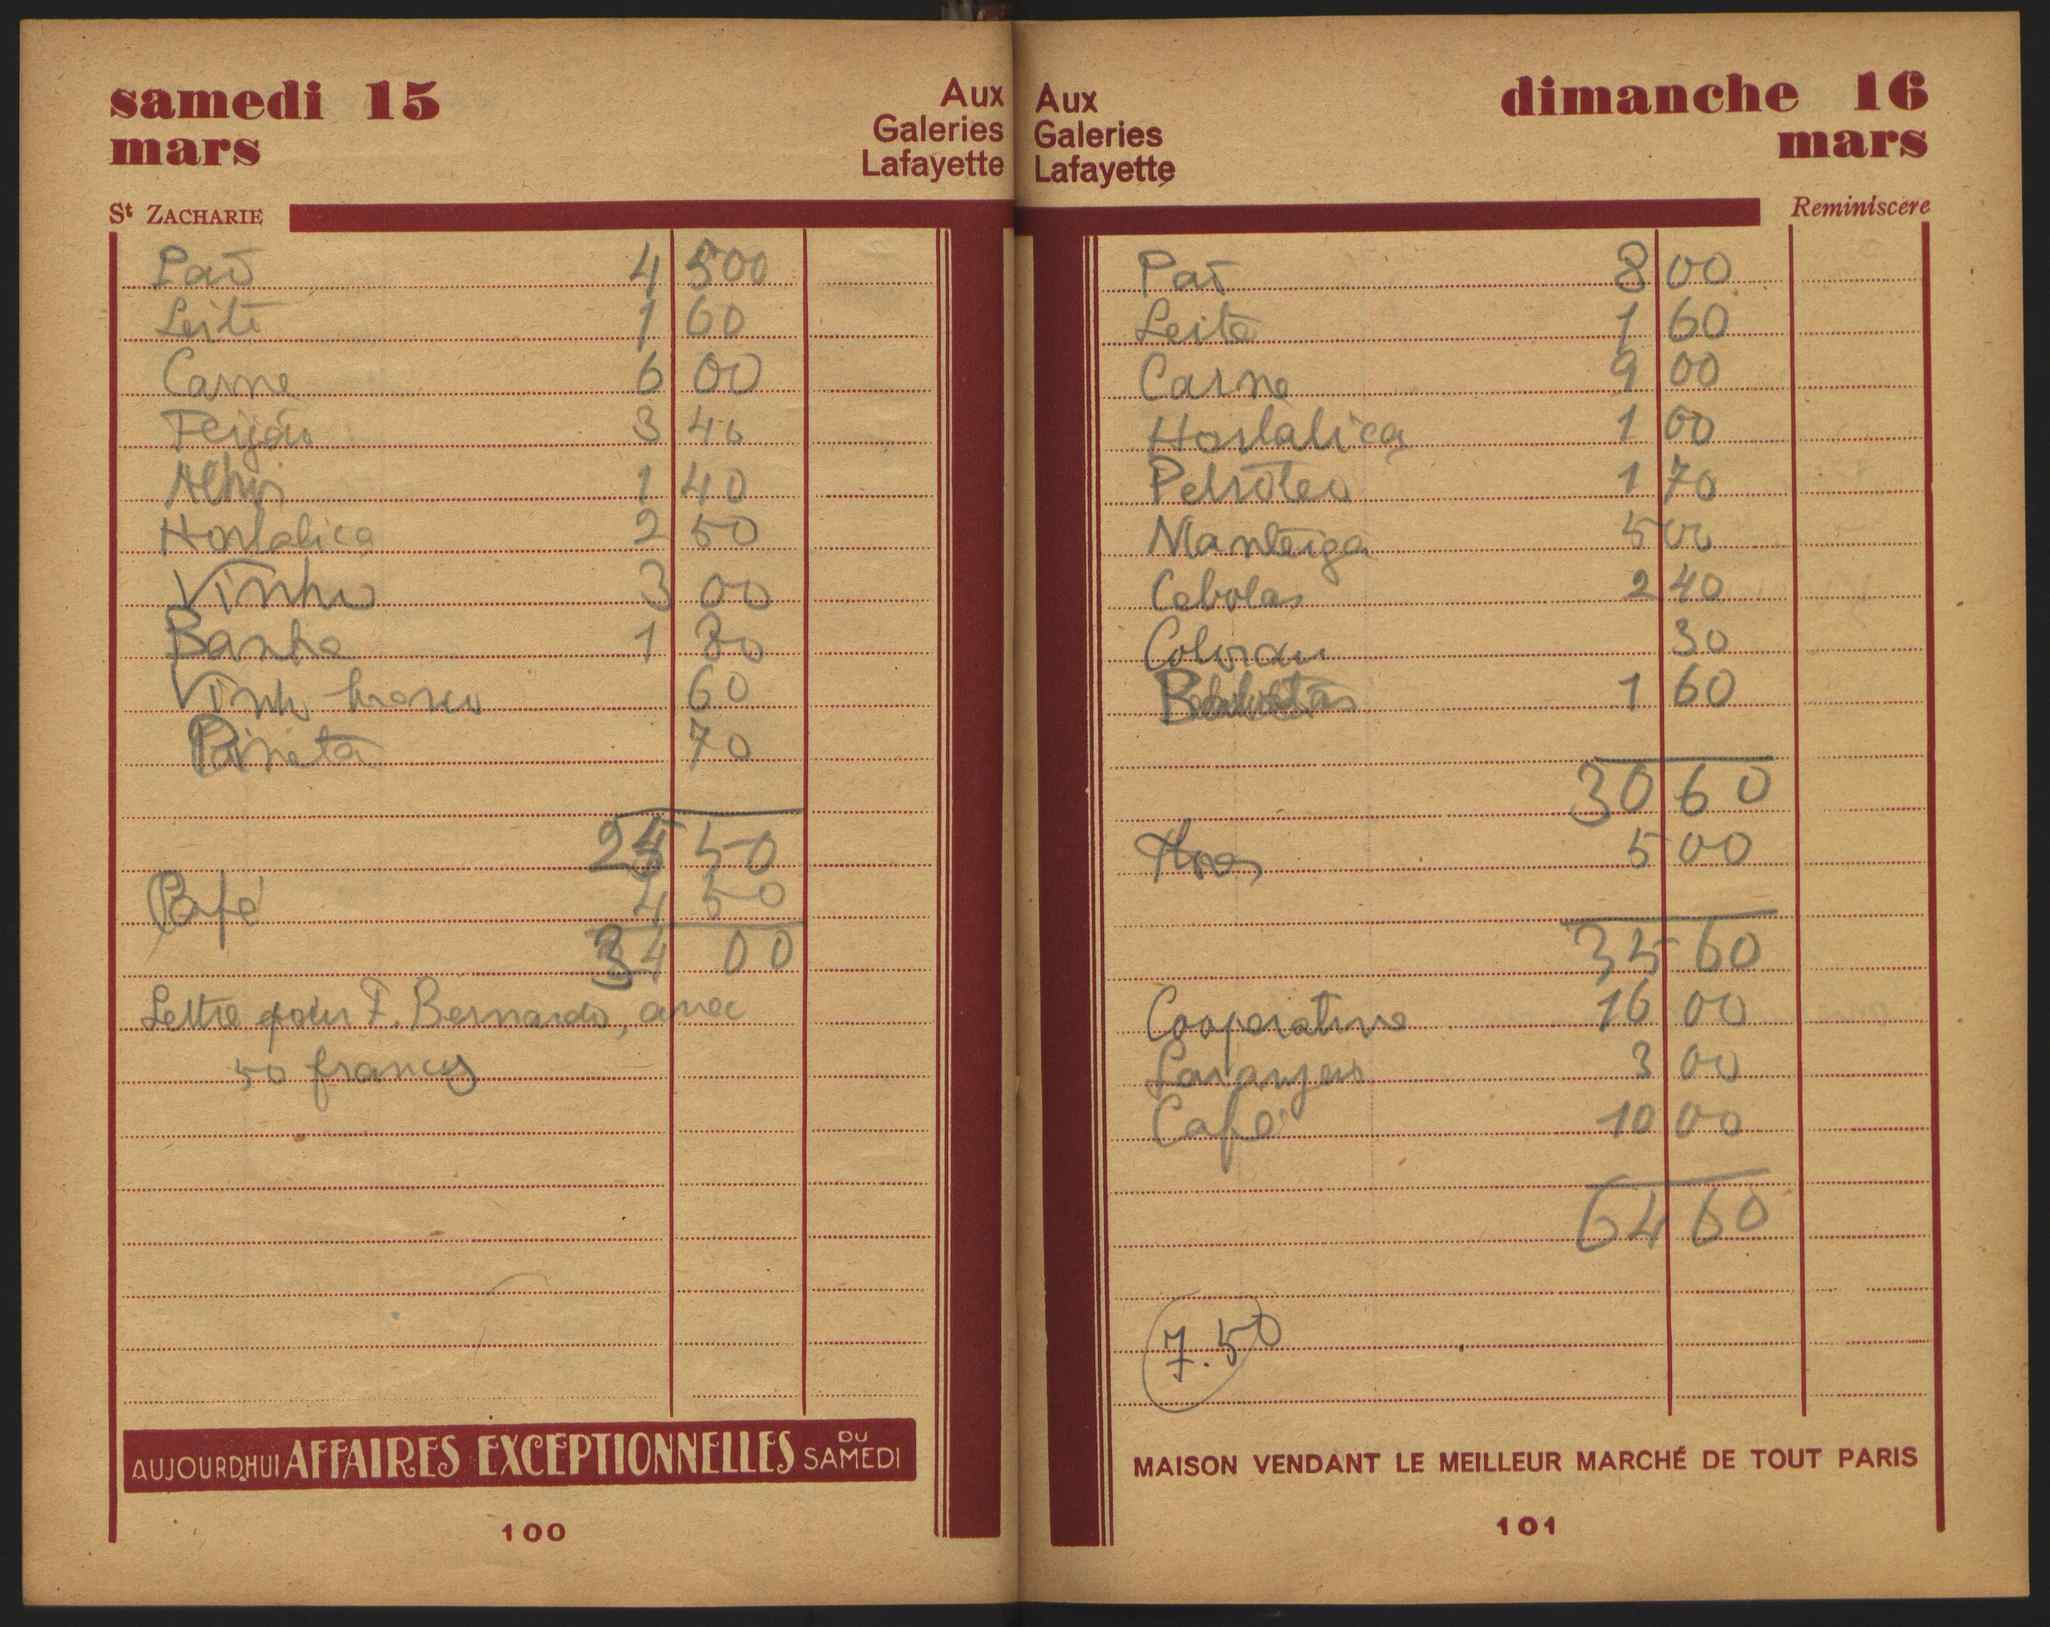 samedi 15
mars
Aux
Galeries
Lafayette
St ZACHARIE
Paõ 4 500
Leite 1 60
Carne 6 00
Feijão 3 40
Alhos 1 40
Hortalica 2 50
Vinho 3 00
Banha 1 80
Vinho branco 60
Pimeta 70
50
Café 4 50
34 00
Lettre pour F. Bernardo, avec
50 francs
AUJOURD'HUI AFFAIRES EXCEPTIONNELLES DU SAMEDI
100
Aux
Galeries
Lafayette
dimanche 16
mars
Reminiscere
Paõ 8 00
Leite 1 60
Carne 9 00
Hortalica 1 00
Petroleo 1 70
Manteiga 5 00
Cebolas 2 40
Colorau 30
1 60
30 60
5 00
35 60
Cooperative 16 00
Laranjas 3 00
Café 10 00
64 60
7.50
MAISON VENDANT LE MEILLEUR MARCHÉ DE TOUT PARIS
101